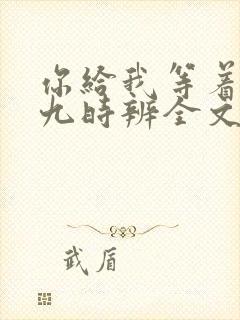 你给我等着
九时辨全文
武盾